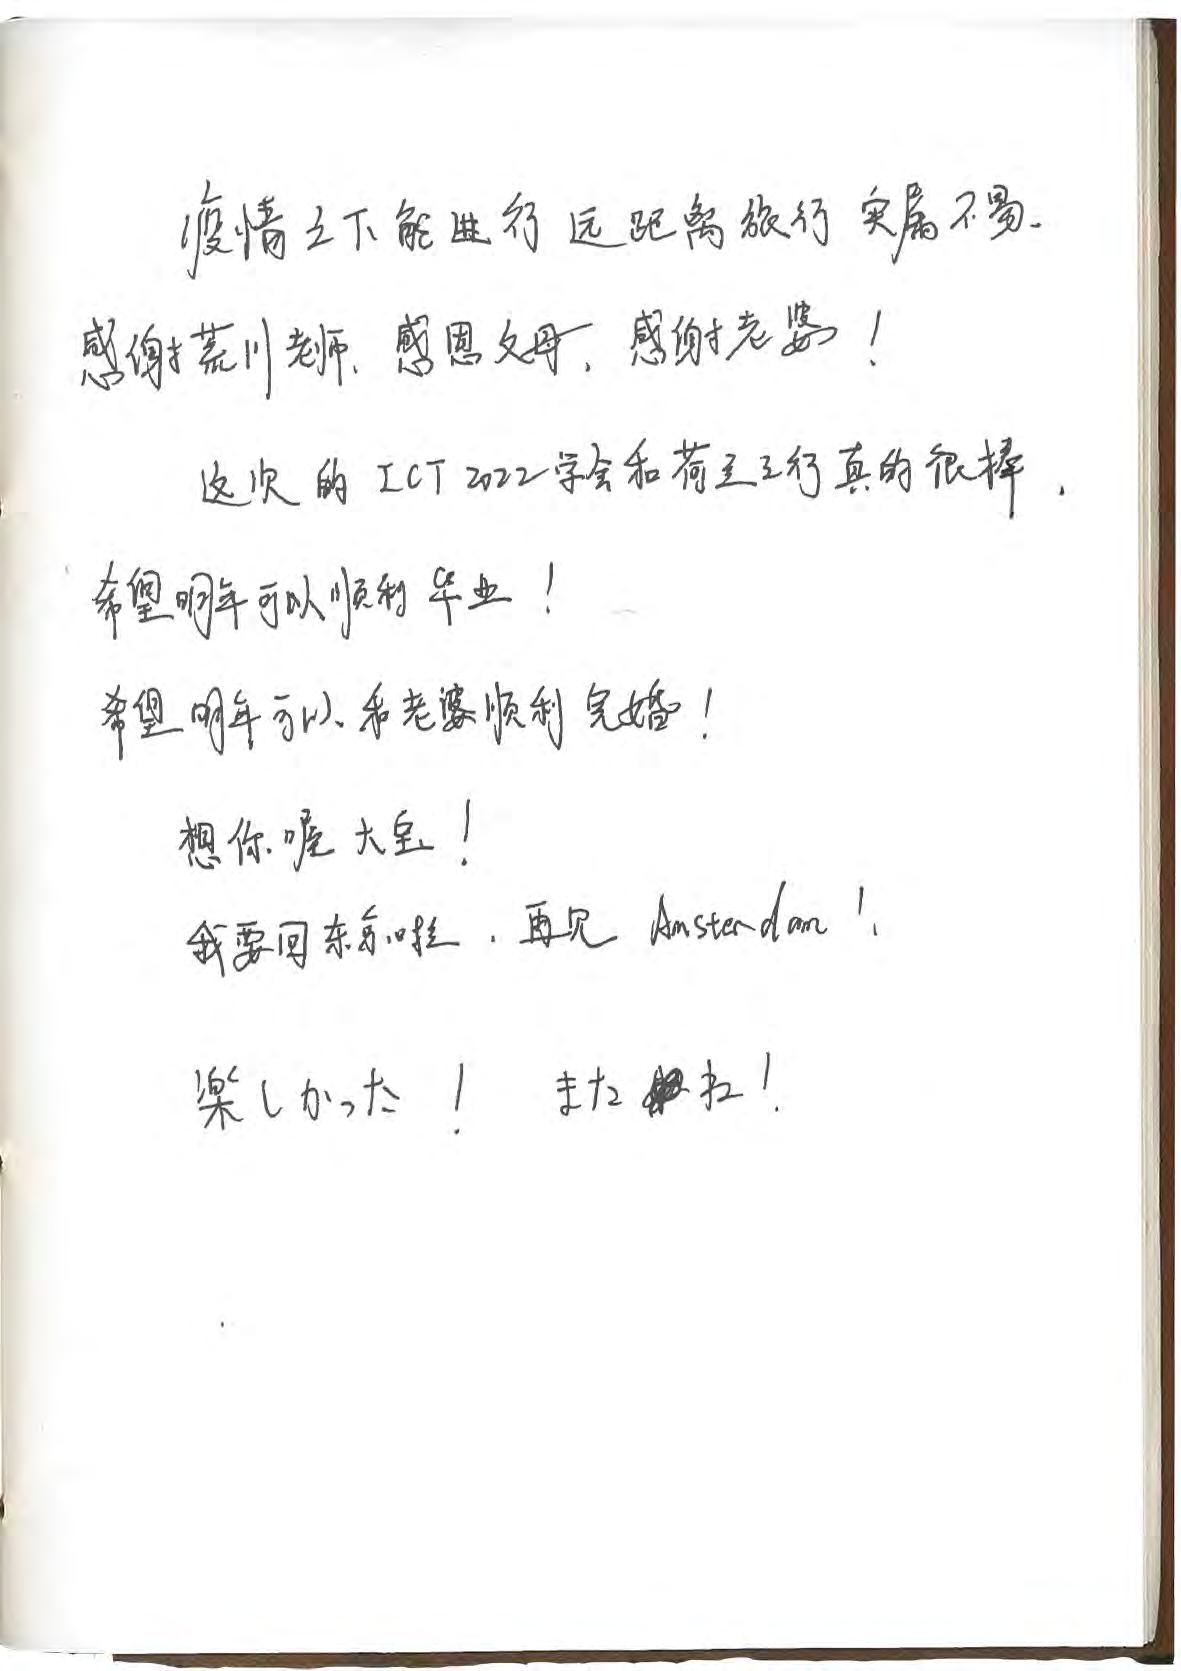 疫情之下能进行远距离旅行实属不易.
感谢荒川老师、感恩父母、感谢老婆!
这次的ICT2022学会和荷兰之行真的很棒.
希望明年可以顺利毕业!
希望明年可以和老婆顺利完婚!
想你喔大宝!
我要回东京啦、再见 Amsterdam!
楽しかった! またね!